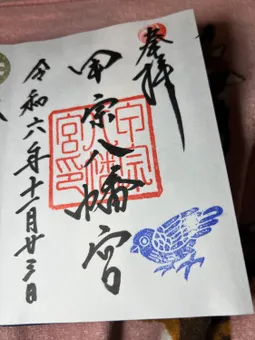 奉拝
甲宗八幡宮
甲宗
八幡
宮印
令和六年十一月廿三日